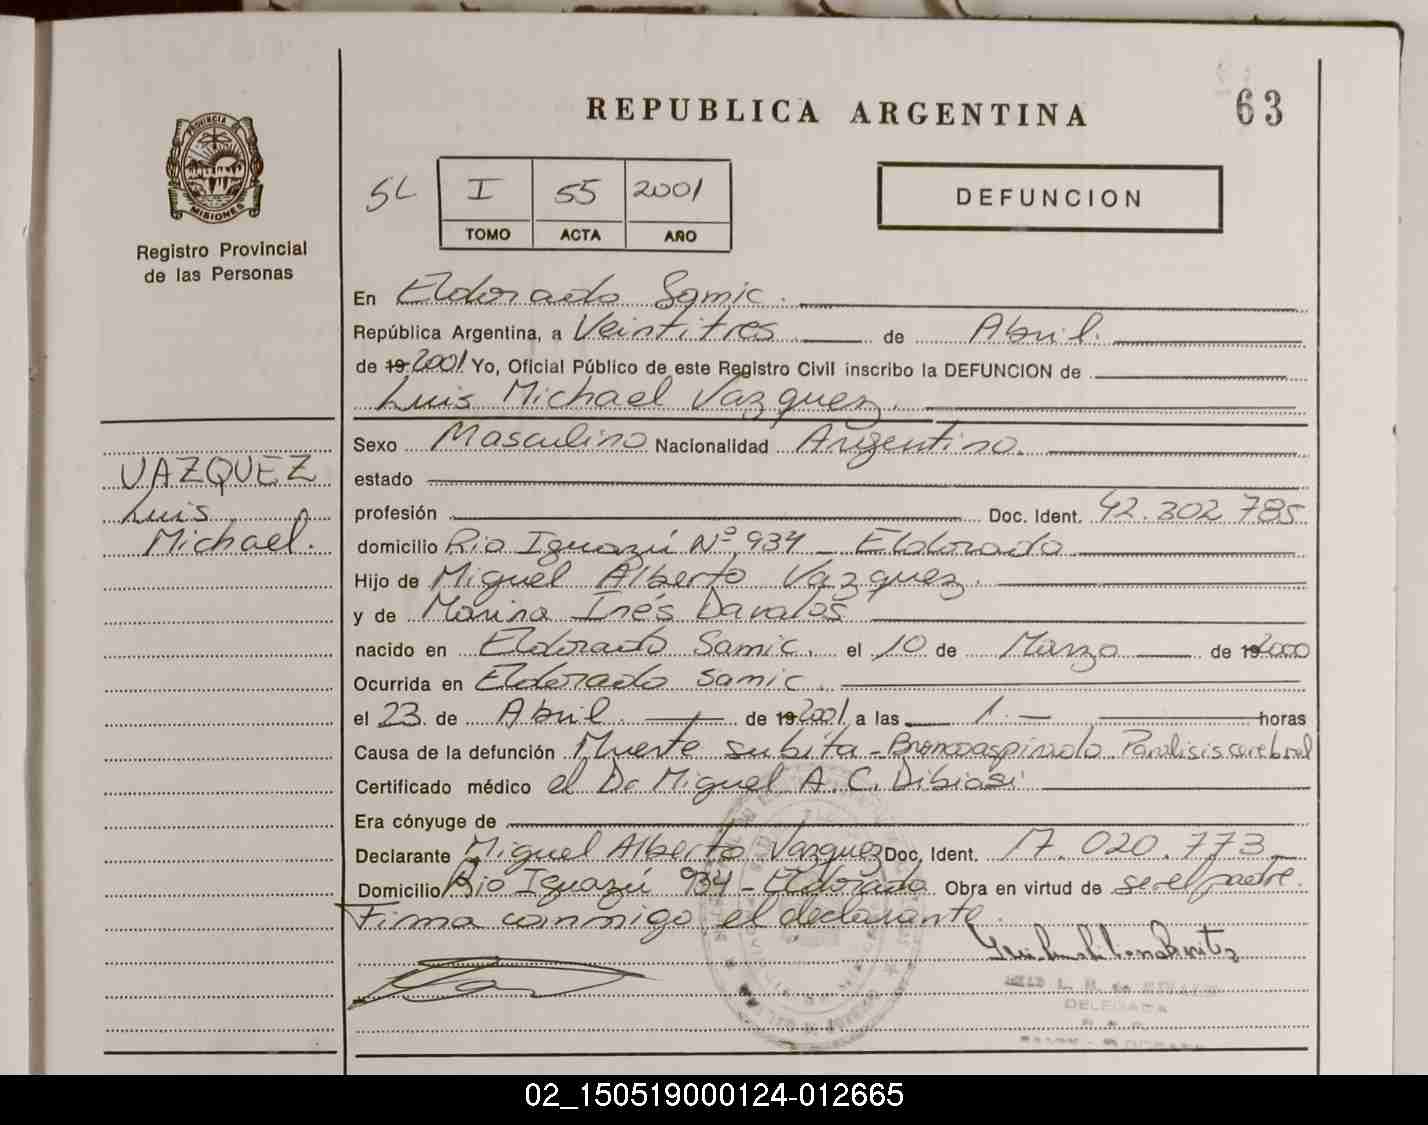 REPUBLICA ARGENTINA
63
PROVINCIA DE
MISIONES
Registro Provincial
de las Personas
SL
I
55
2001
TOMO
ACTA
AÑO
DEFUNCION
En Eldorado Samic.
República Argentina, a Veintitres de Abril.
de 19 2001 Yo, Oficial Público de este Registro Civil inscribo la DEFUNCION de
Luis Michael Vazquez.
Sexo Masculino Nacionalidad Argentino.
VAZQUEZ
Luis
Michael.
estado
profesión Doc. Ident. 42.302 785
domicilio Rio Iguazú Nº 934 - Eldorado
Hijo de Miguel Alberto Vazquez.
y de Marina Inés Davalos
nacido en Eldorado Samic. el 10 de Marzo de 19 2000
Ocurrida en Eldorado Samic.
el 23 de Abril. de 19 2001 a las 1. horas
Causa de la defunción Muerte subita - Broncoaspirado Paralisis cerebral
Certificado médico el Dr Miguel A. C. Dibiasi
Era cónyuge de
Declarante Miguel Alberto Vazquez Doc. Ident. 17.020.773
Domicilio Rio Iguazú 934 - Eldorado Obra en virtud de ser el padre.
Firma conmigo el declarante.
DELEGADA
02_150519000124-012665